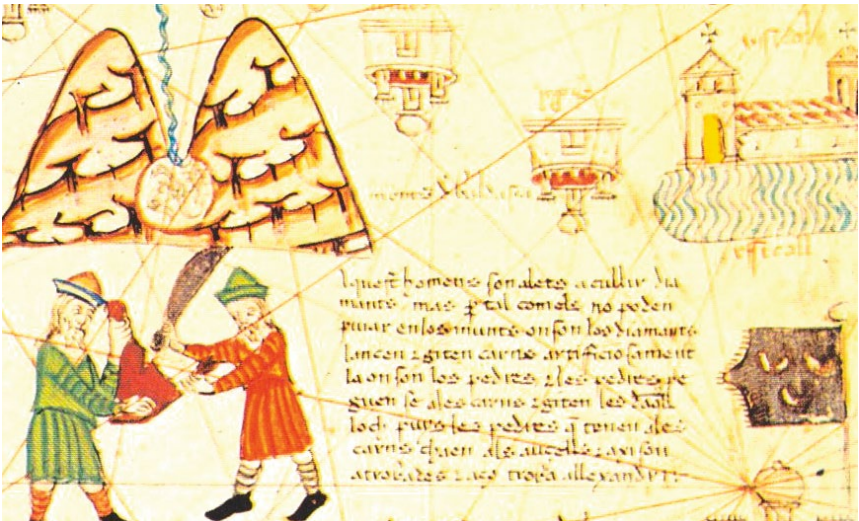 Aquest homens son alets a cullir dia
mants mas p tal com els no poden
puiar en los munts on son los diamants
lancen e giten carns artificiosament
la on son les pedres e les pedres pe
guen se a les carns e giten les daqll
loch purs les pedres q tenen a les
carns chaen als aucells e axi son
atrobades e aço troba allexandri